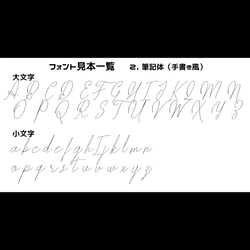 フォント見本一覧　2. 筆記体（手書き風）
大文字
A B C D E F G H I J K L M N
O P Q R S T U V W X Y Z
小文字
a b c d e f g h I j k l m n
o p q r s t u v w x y z